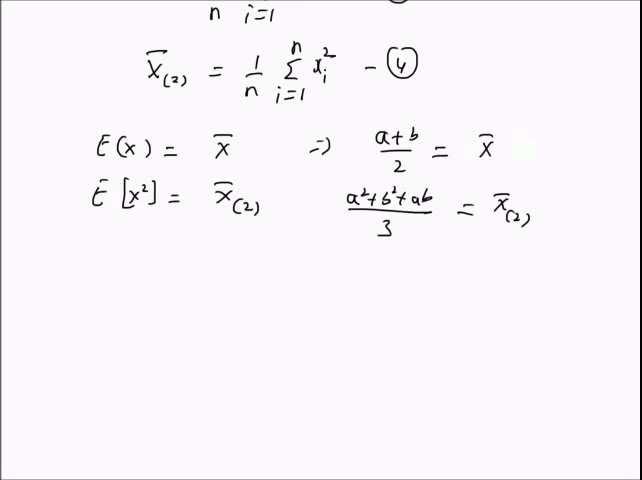 n i=1
x̄₍₂₎ = 1/n Σ_{i=1}^{n} x_i² - ④
E(x) = x̄ ⇒ a+b/2 = x̄
E[x²] = x̄₍₂₎ a²+b²+ab/3 = x̄₍₂₎